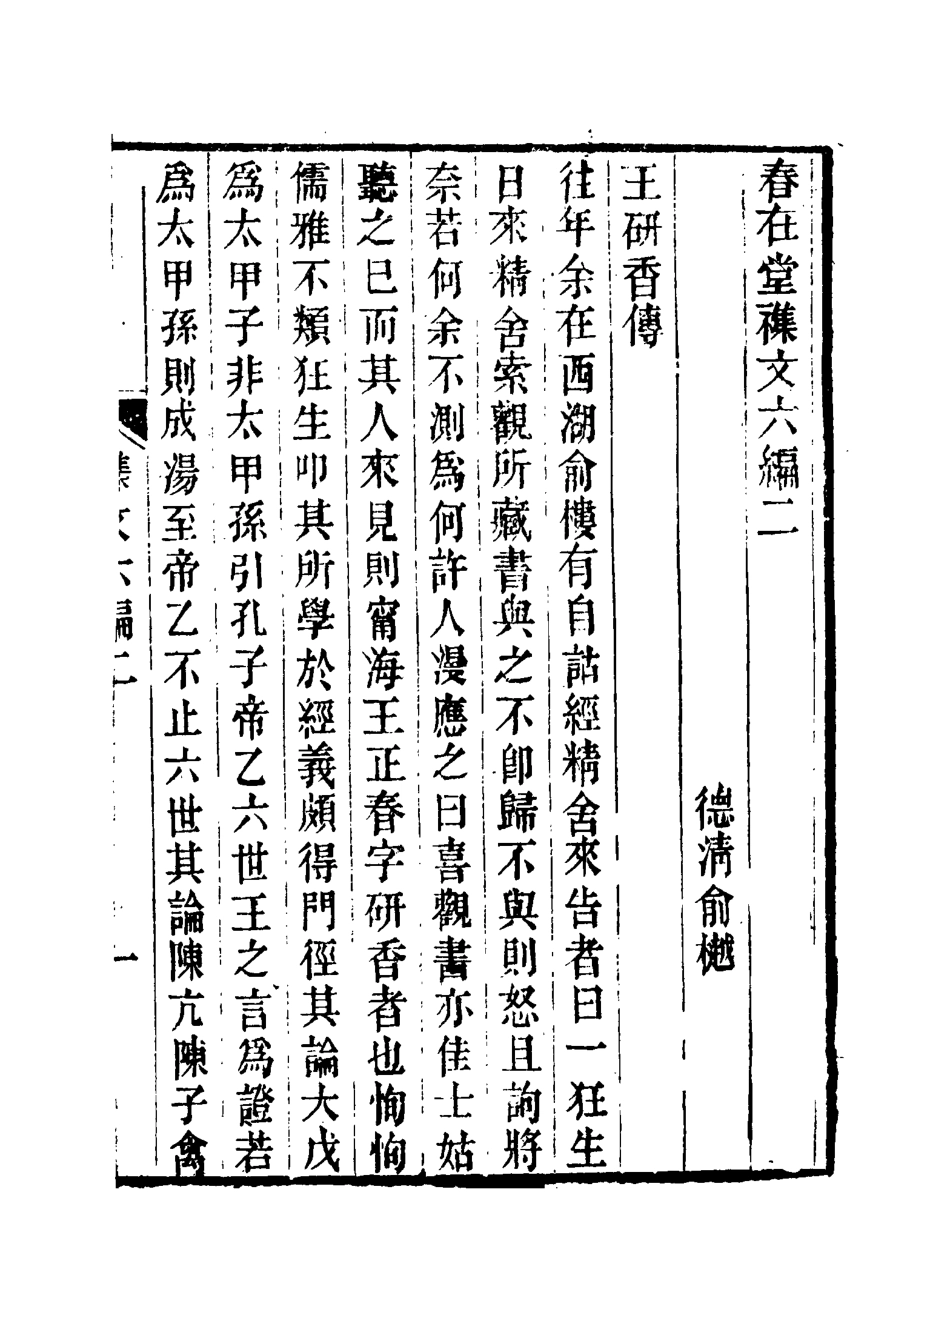 春在堂襍文六編二
德清俞樾
王研香傳
往年余在西湖俞樓有自詁經精舍來告者曰一狂生
日來精舍索觀所藏書與之不卽歸不與則怒且詢將
奈若何余不測爲何許人漫應之曰喜觀書亦佳士姑
聽之已而其人來見則甯海王正春字研香者也恂恂
儒雅不類狂生叩其所學於經義頗得門徑其論大戊
爲太甲子非太甲孫引孔子帝乙六世王之言爲證若
爲太甲孫則成湯至帝乙不止六世其論陳亢陳子禽
集文六編二
一